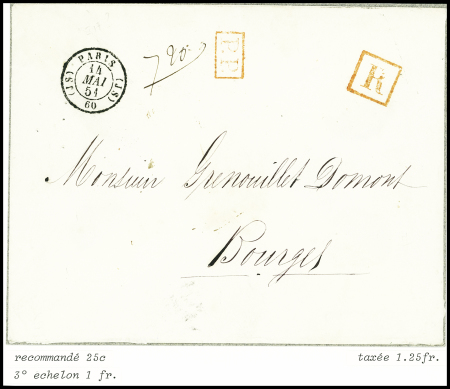 PARIS
(JS) (JS)
14
MAI
51
60
720
P.P.
R
Monsieur Grenouillet Domont
Bourges
recommandé 25c
taxée 1.25fr.
3° echelon 1 fr.